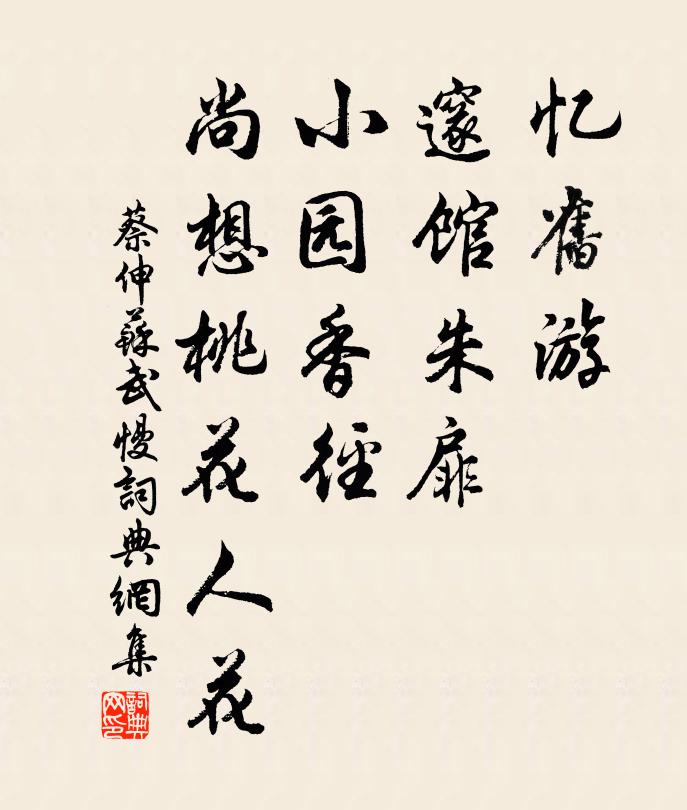 忆旧游
邃馆朱扉
小园香径
尚想桃花人花
蔡伸蘇武慢詞典網集
詞典网印